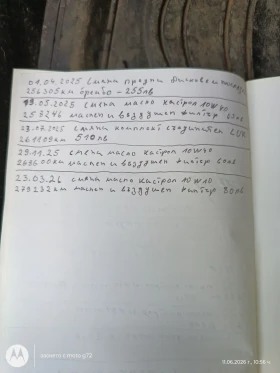 01.04.2025 смяна предни дискове и
256305км брембо - 255лв
19.05.2025 смяна масло кастрол 10W40
255246 маслен и въздушен филтър
23.07.2025 смяна комплект съединител LUK
261109км 510лв
29.11.25 смяна масло кастрол 10W40
269500км маслен и въздушен филтър
23.03.26 смяна масло кастрол 10W10
279232км маслен и въздушен филтър 80лв
снимете с moto g72
11.06.2026 г. 10:58 ч.